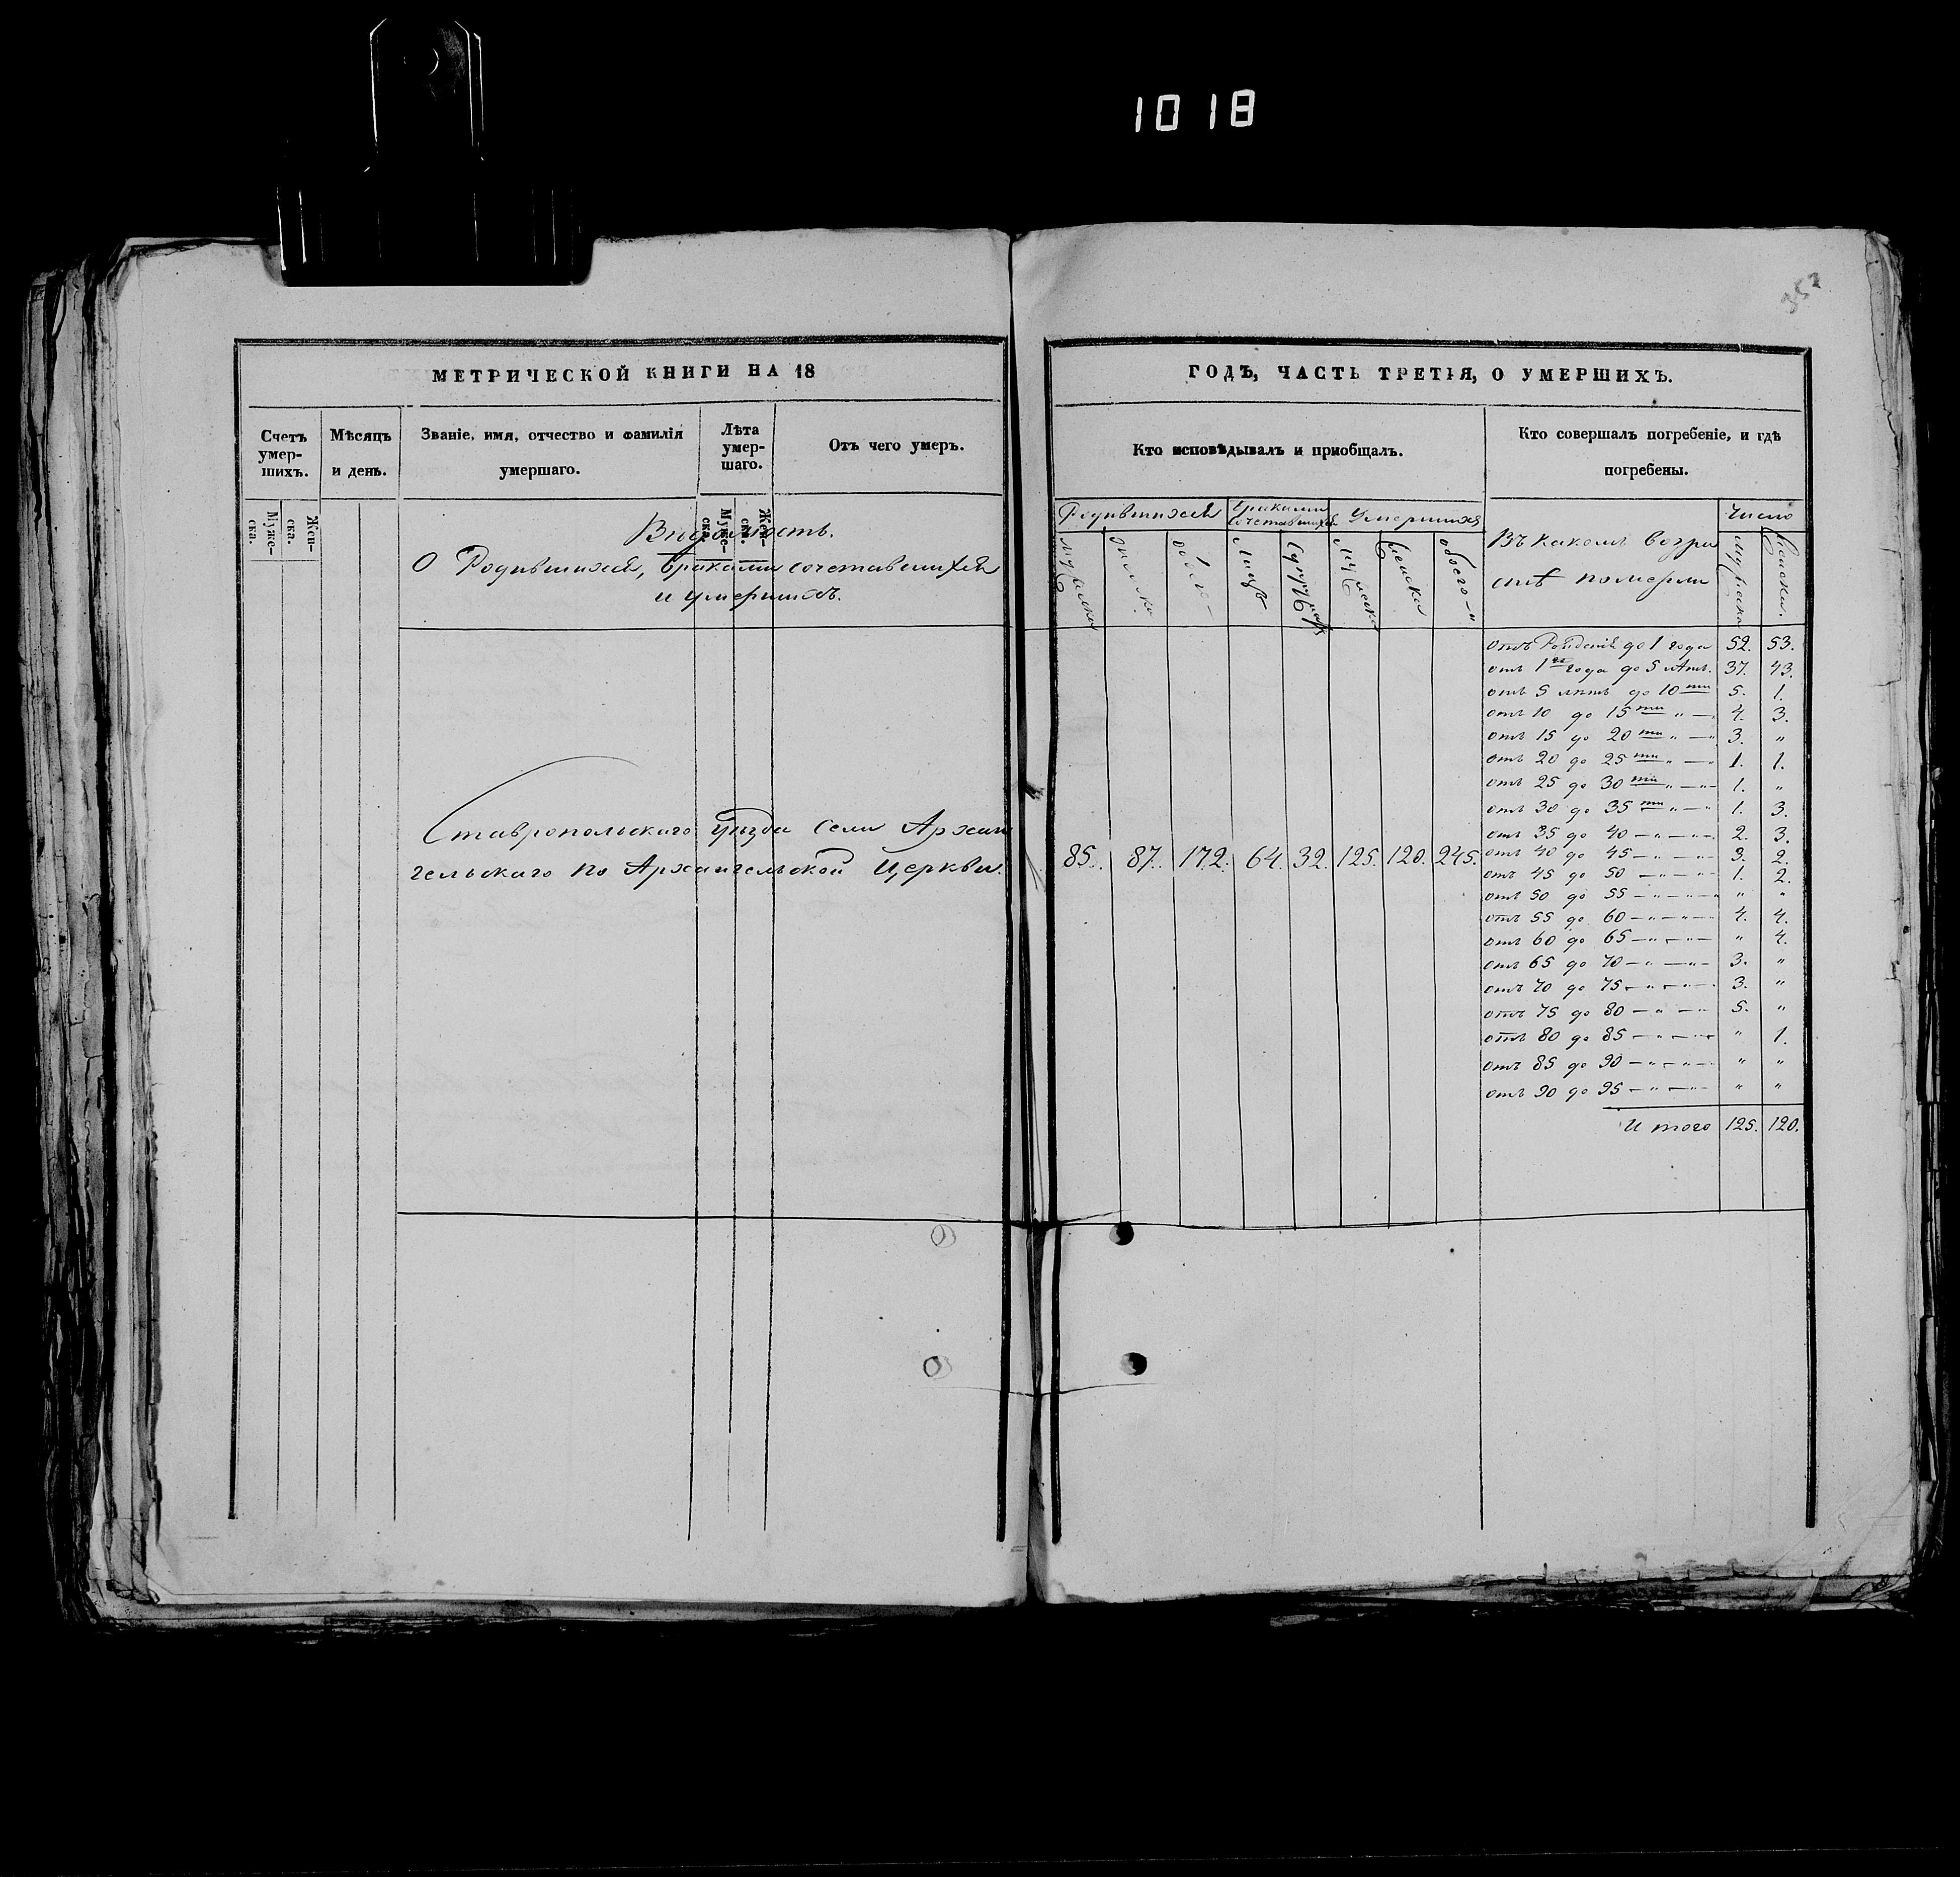 1018
352
МЕТРИЧЕСКОЙ КНИГИ НА 18
Счетъ умер-шихъ.
Муже-ска.
Жен-ска.
Мѣсяцъ и день.
Званіе, имя, отчество и фамилія умершаго.
Лѣта умер-шаго.
Муже-ска.
Жен-ска.
Отъ чего умеръ.
Вѣдомость.
О Родившихся, бракомъ сочетавшихся
и умершихъ.
Ставропольскаго уѣзда села Архан
гельскаго по Архангельской Церкви.
ГОДЪ, ЧАСТЬ ТРЕТІЯ, О УМЕРШИХЪ.
Кто исповѣдывалъ и пріобщалъ.
Кто совершалъ погребеніе, и гдѣ погребены.
Родившихся
бракомъ сочетавшихся
Умершихъ
Въ какомъ возра
стѣ померли
Число
мужеска
женска
обоего
Лицъ
Супружествъ
мужеска
женска
обоего
мужеска
женска.
85. 87. 172. 64. 32. 125. 120. 245.
отъ Рожденія до 1 года 52. 53.
отъ 1го года до 5 лѣтъ. 37. 43.
отъ 5 лѣтъ до 10ти 5. 1.
отъ 10 до 15ти " — 4. 3.
отъ 15 до 20ти " — " 3. "
отъ 20 до 25ти " — " 1. 1.
отъ 25 до 30ти " — " 1. "
отъ 30 до 35ти " — " 1. 3.
отъ 35 до 40 — " — " — 2. 3.
отъ 40 до 45 — " — " — 3. 2.
отъ 45 до 50 — " — " — 1. 2.
отъ 50 до 55 — " — " — " "
отъ 55 до 60 — " — " — 4. 4.
отъ 60 до 65 — " — " — " 4.
отъ 65 до 70 — " — " — 3. "
отъ 70 до 75 — " — " — 3. "
отъ 75 до 80 — " — " 5. "
отъ 80 до 85 — " — " — " 1.
отъ 85 до 90 — " — " — " "
отъ 90 до 95 — " — " — " "
Итого 125. 120.